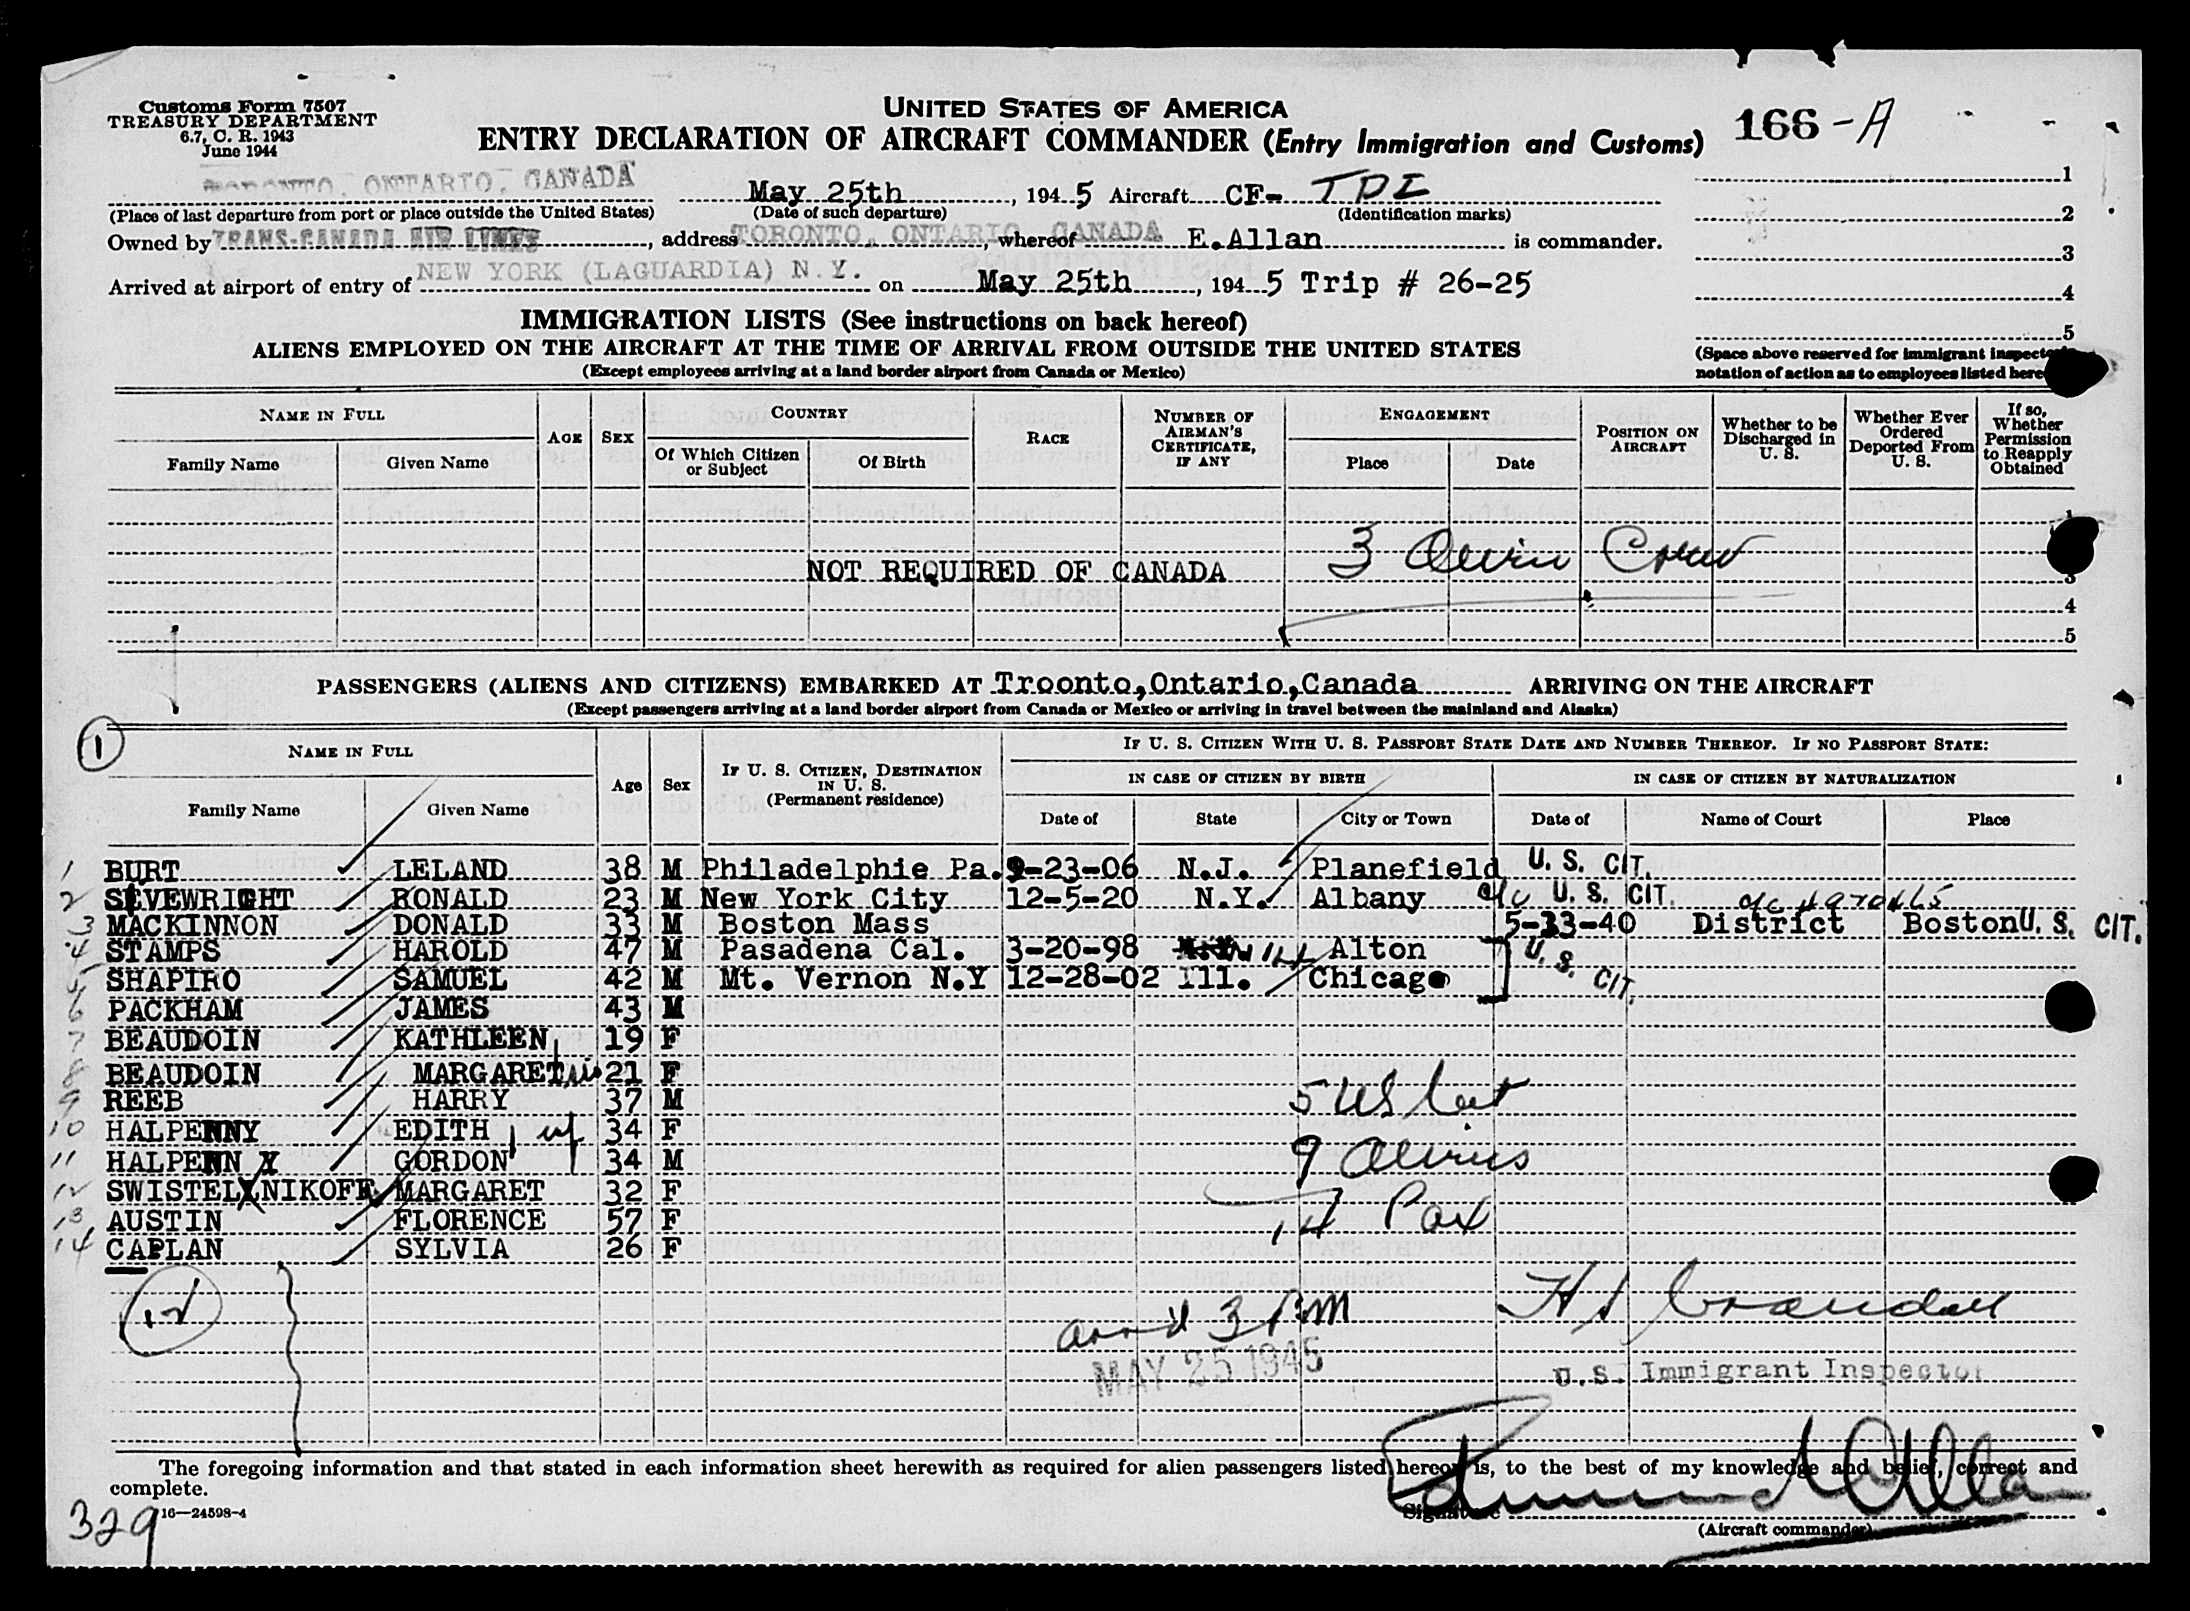 Customs Form 7507
TREASURY DEPARTMENT
6.7, C. R. 1943
June 1944
UNITED STATES OF AMERICA
ENTRY DECLARATION OF AIRCRAFT COMMANDER (Entry Immigration and Customs)
166-A
TORONTO, ONTARIO, CANADA May 25th, 1945 Aircraft CF-TDI
(Place of last departure from port or place outside the United States) (Date of such departure) (Identification marks)
Owned by TRANS-CANADA AIR LINES, address TORONTO, ONTARIO, CANADA, whereof E.Allan is commander.
Arrived at airport of entry of NEW YORK (LAGUARDIA) N.Y. on May 25th, 1945 Trip # 26-25
1
2
3
4
5
(Space above reserved for immigrant
notation of action as to employees listed
IMMIGRATION LISTS (See instructions on back hereof)
ALIENS EMPLOYED ON THE AIRCRAFT AT THE TIME OF ARRIVAL FROM OUTSIDE THE UNITED STATES
(Except employees arriving at a land border airport from Canada or Mexico)
NAME IN FULL
Family Name Given Name
AGE SEX
COUNTRY
Of Which Citizen or Subject Of Birth
RACE
NUMBER OF AIRMAN'S CERTIFICATE, IF ANY
ENGAGEMENT
Place Date
POSITION ON AIRCRAFT
Whether to be Discharged in U. S.
Whether Ever Ordered Deported From U. S.
If so, Whether Permission to Reapply Obtained
NOT REQUIRED OF CANADA 3 Crew
3
4
5
PASSENGERS (ALIENS AND CITIZENS) EMBARKED AT Troonto,Ontario,Canada ARRIVING ON THE AIRCRAFT
(Except passengers arriving at a land border airport from Canada or Mexico or arriving in travel between the mainland and Alaska)
1
NAME IN FULL
Family Name Given Name
Age Sex
IF U. S. CITIZEN, DESTINATION IN U. S. (Permanent residence)
IF U. S. CITIZEN WITH U. S. PASSPORT STATE DATE AND NUMBER THEREOF. IF NO PASSPORT STATE:
IN CASE OF CITIZEN BY BIRTH IN CASE OF CITIZEN BY NATURALIZATION
Date of State City or Town Date of Name of Court Place
1 BURT LELAND 38 M Philadelphie Pa. 9-23-06 N.J. Planefield U. S. CIT.
2 SEVEWRIGHT RONALD 23 M New York City 12-5-20 N.Y. Albany U. S. CIT.
3 MACKINNON DONALD 33 M Boston Mass 5-13-40 District Boston U. S. CIT.
4 STAMPS HAROLD 47 M Pasadena Cal. 3-20-98 ILL Alton U. S. CIT.
5 SHAPIRO SAMUEL 42 M Mt. Vernon N.Y 12-28-02 Ill. Chicago
6 PACKHAM JAMES 43 M
7 BEAUDOIN KATHLEEN 19 F
8 BEAUDOIN MARGARET sis 21 F
9 REEB HARRY 37 M 5 US Cit
10 HALPENNY EDITH wf 34 F
11 HALPENNY GORDON 34 M 9 Aliens
12 SWISTELNIKOFF MARGARET 32 F
13 AUSTIN FLORENCE 57 F 14 Pax
14 CAPLAN SYLVIA 26 F
12
arr'd 3 PM
MAY 25 1945
U.S. Immigrant Inspector
The foregoing information and that stated in each information sheet herewith as required for alien passengers listed hereon is, to the best of my knowledge and belief, correct and
complete.
Signature Edmund Allan
16—24598-4
(Aircraft commander)
329